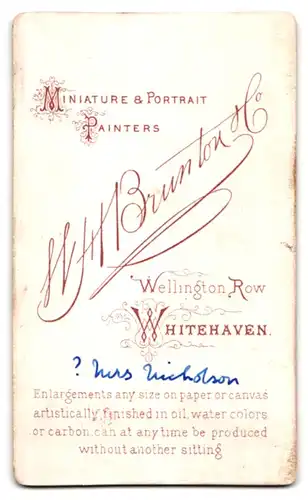 MINIATURE & PORTRAIT
PAINTERS
W H Brunton & Co
Wellington Row
WHITEHAVEN.
? Mrs Nicholson
Enlargements any size on paper or canvas
artistically finished in oil, water colors
or carbon, can at any time be produced
without another sitting